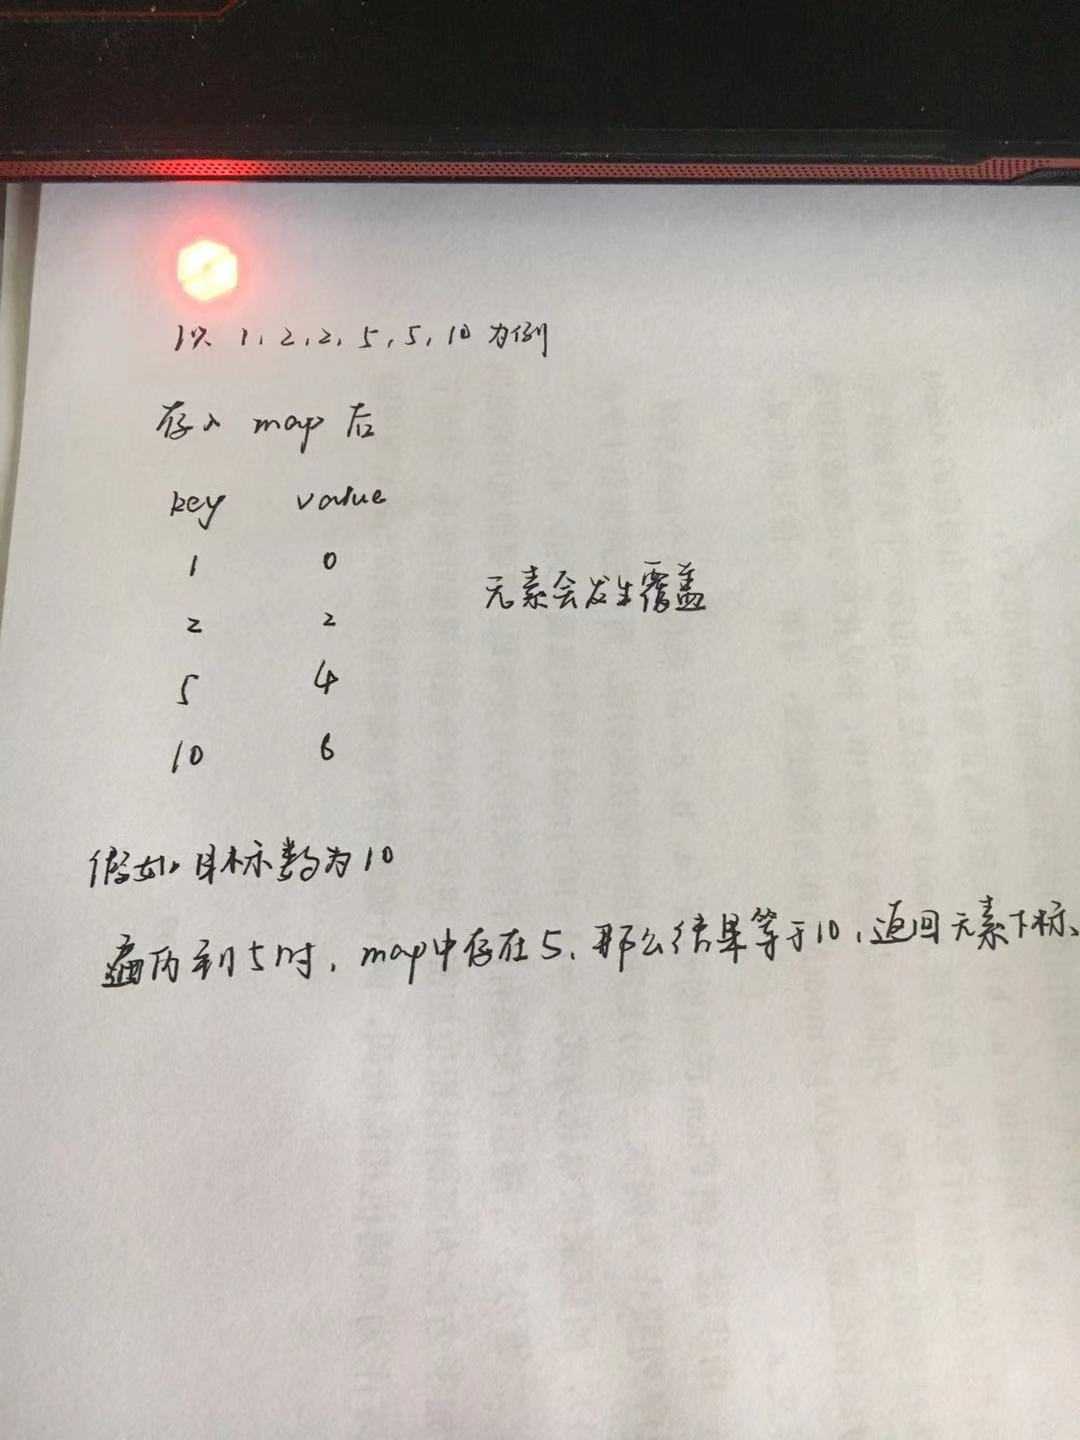 以 1, 2, 2, 5, 5, 10 为例
存入 map 后
key value
1 0
2 2
元素会发生覆盖
5 4
10 6
假如目标数为10
遍历到5时, map中存在5, 那么结果等于10, 返回元素下标、